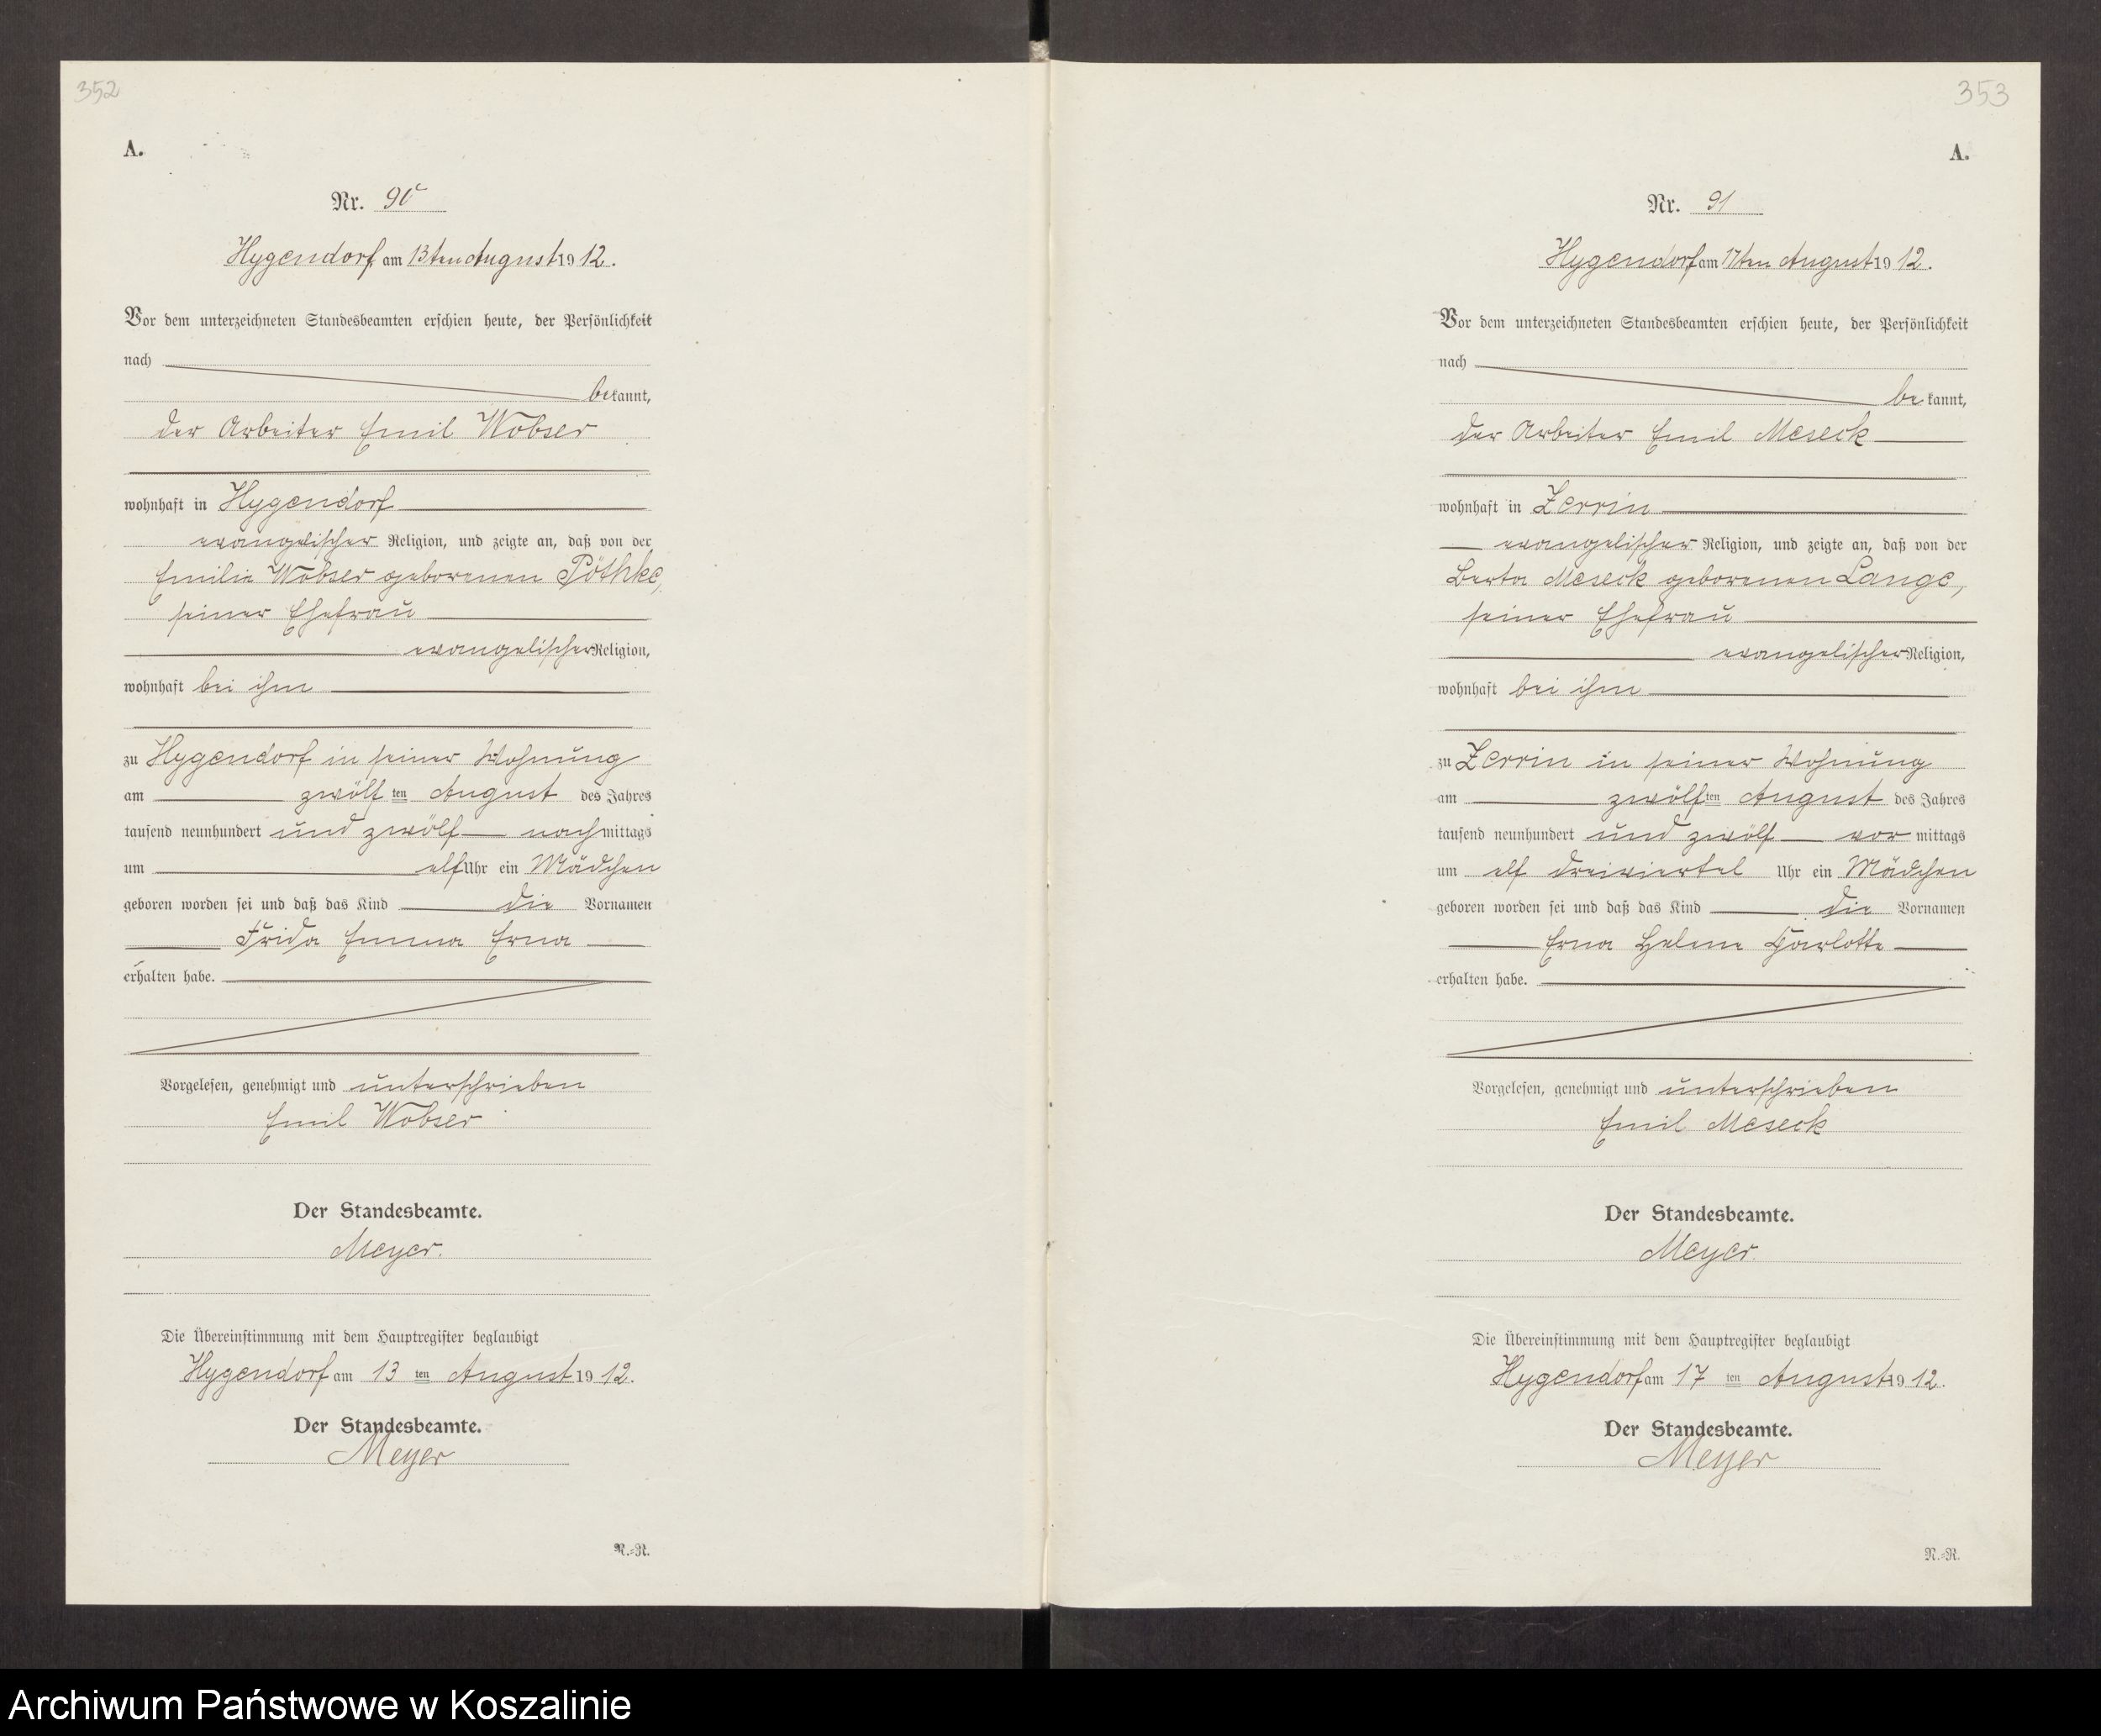 352
A.
Nr. 90
Hygendorf am 13ten August 1912.
Vor dem unterzeichneten Standesbeamten erschien heute, der Persönlichkeit
nach
bekannt,
der Arbeiter Emil Wobser
wohnhaft in Hygendorf
evangelischer Religion, und zeigte an, daß von der
Emilie Wobser geborenen Pöthke,
seiner Ehefrau
evangelischer Religion,
wohnhaft bei ihm
zu Hygendorf in seiner Wohnung
am zwölf ten August des Jahres
tausend neunhundert und zwölf nachmittags
um elf Uhr ein Mädchen
geboren worden sei und daß das Kind die Vornamen
Frida Emma Erna
erhalten habe.
Vorgelesen, genehmigt und unterschrieben
Emil Wobser
Der Standesbeamte.
Meyer.
Die Übereinstimmung mit dem Hauptregister beglaubigt
Hygendorf am 13 ten August 1912.
Der Standesbeamte.
Meyer
N.=R.
353
A.
Nr. 91
Hygendorf am 17ten August 1912.
Vor dem unterzeichneten Standesbeamten erschien heute, der Persönlichkeit
nach
bekannt,
der Arbeiter Emil Meseck
wohnhaft in Zerrin
evangelischer Religion, und zeigte an, daß von der
Berta Meseck geborenen Lange,
seiner Ehefrau
evangelischer Religion,
wohnhaft bei ihm
zu Zerrin in seiner Wohnung
am zwölften August des Jahres
tausend neunhundert und zwölf vor mittags
um elf dreiviertel Uhr ein Mädchen
geboren worden sei und daß das Kind die Vornamen
Erna Helene Charlotte
erhalten habe.
Vorgelesen, genehmigt und unterschrieben
Emil Meseck
Der Standesbeamte.
Meyer.
Die Übereinstimmung mit dem Hauptregister beglaubigt
Hygendorf am 17 ten August 1912.
Der Standesbeamte.
Meyer
N.=R.
Archiwum Państwowe w Koszalinie